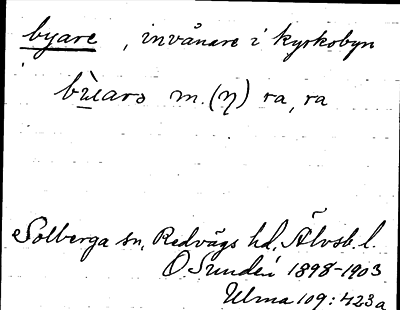 byare, invånare i kyrkobyn
m. (η) ra, ra
Solberga sn, Redvägs hd, Älvsb. l.
O. Sundén 1898-1903
Ulma 109:423a